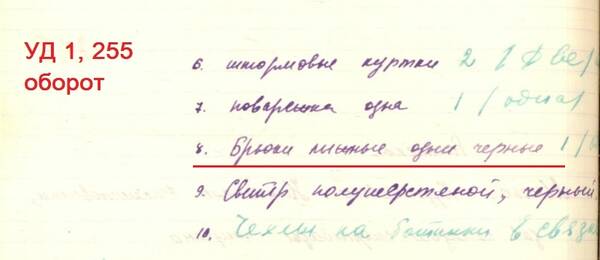 УД 1, 255
оборот
6. штормовые куртки 2
7. поварешка одна 1 / одна /
8. Брюки лыжные одни черные 1 /
9. Свитр полушерстяной, черный
10. Чехлы на ботинки в связ